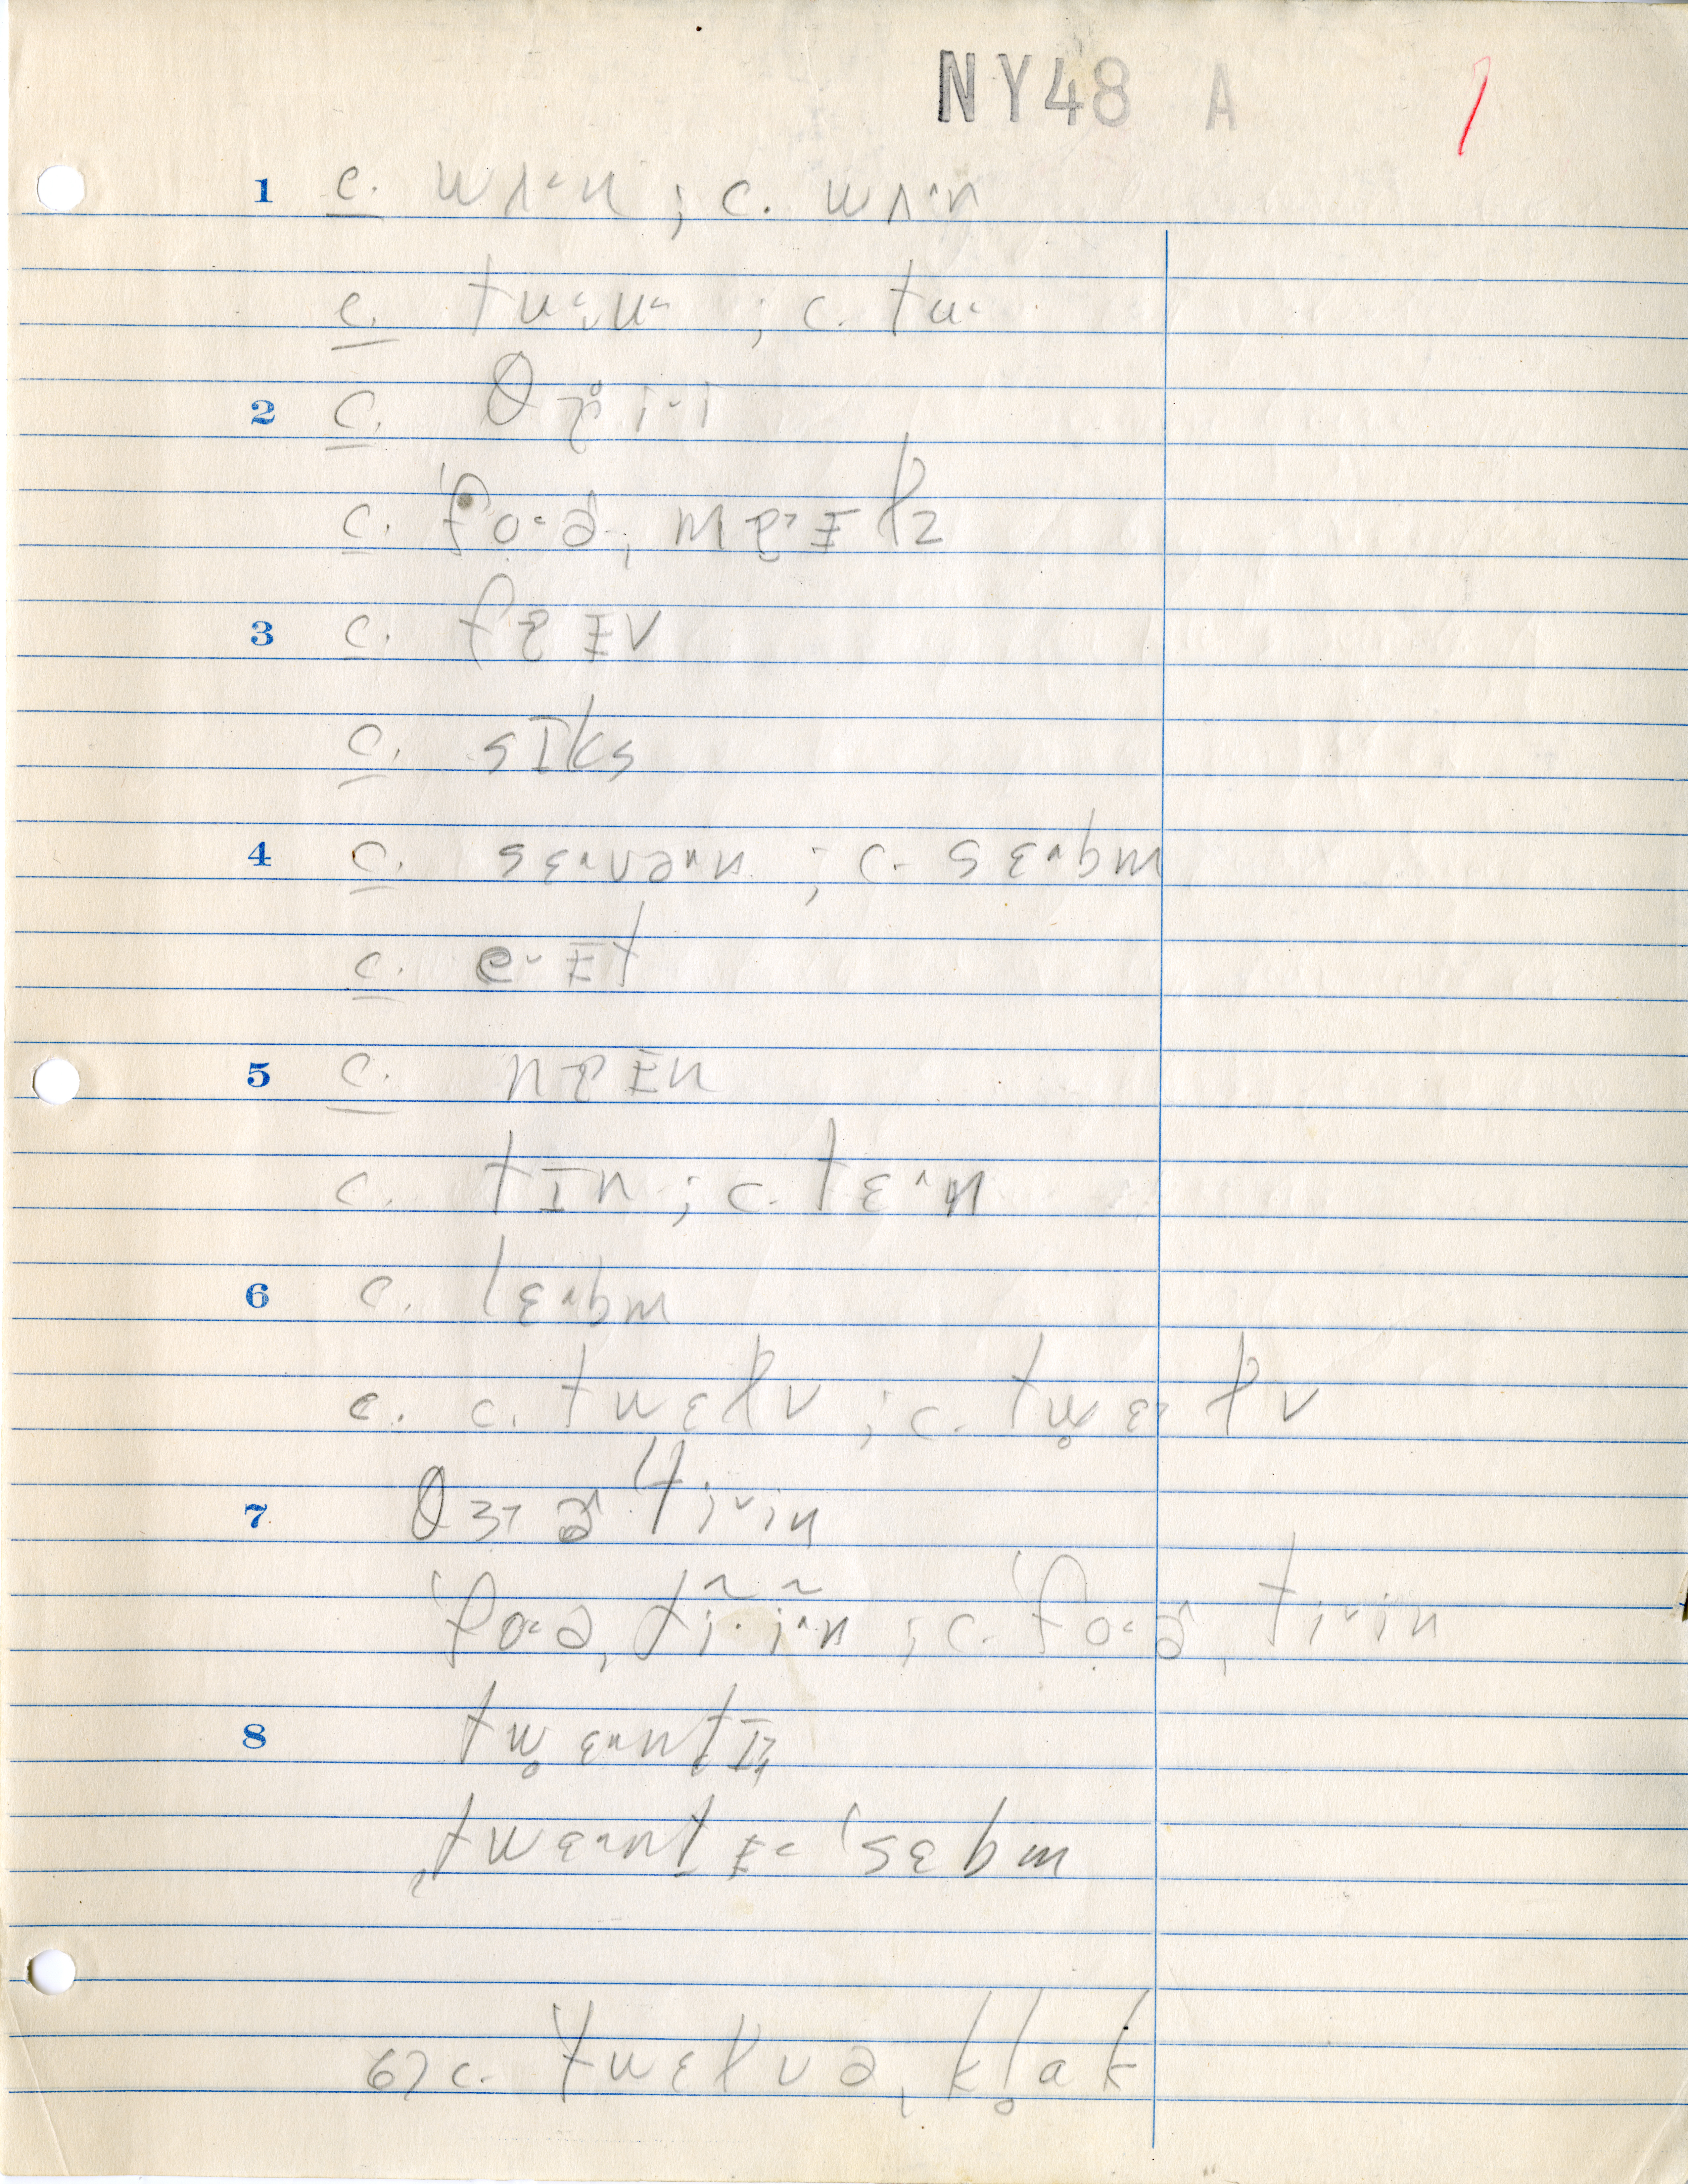 NY48 A 1
1 c. wʌ˞n ; c. wʌ˞n
c. tu˞u˞ ; c. tu˞
2 c. θɹ̥i˞i
c. ˈfo˞ə, mɐ˞ɪɫz
3 c. fɐɪv
c. sɪks
4 c. sɛ˞və˞n ; c. sɛ˞bm
c. e˞ɪt
5 c. nɐɪn
c. tɪn ; c. tɛ˞n
6 c. lɛ˞bm
c. c. twɛɫv ; c. tw̥ɛ˞ɫv
7 θɜ˞ɚˈti˞in
ˈfo˞ə,tĩ˞ĩ˞n ; c. ˈfo˞ɚ,ti˞in
8 tw̥ɛ˞ntɪ
ˌtwɛ˞ntɪ˞ ˈsɛbm
6) c. ˈtwɛɫvə, kl̥ak